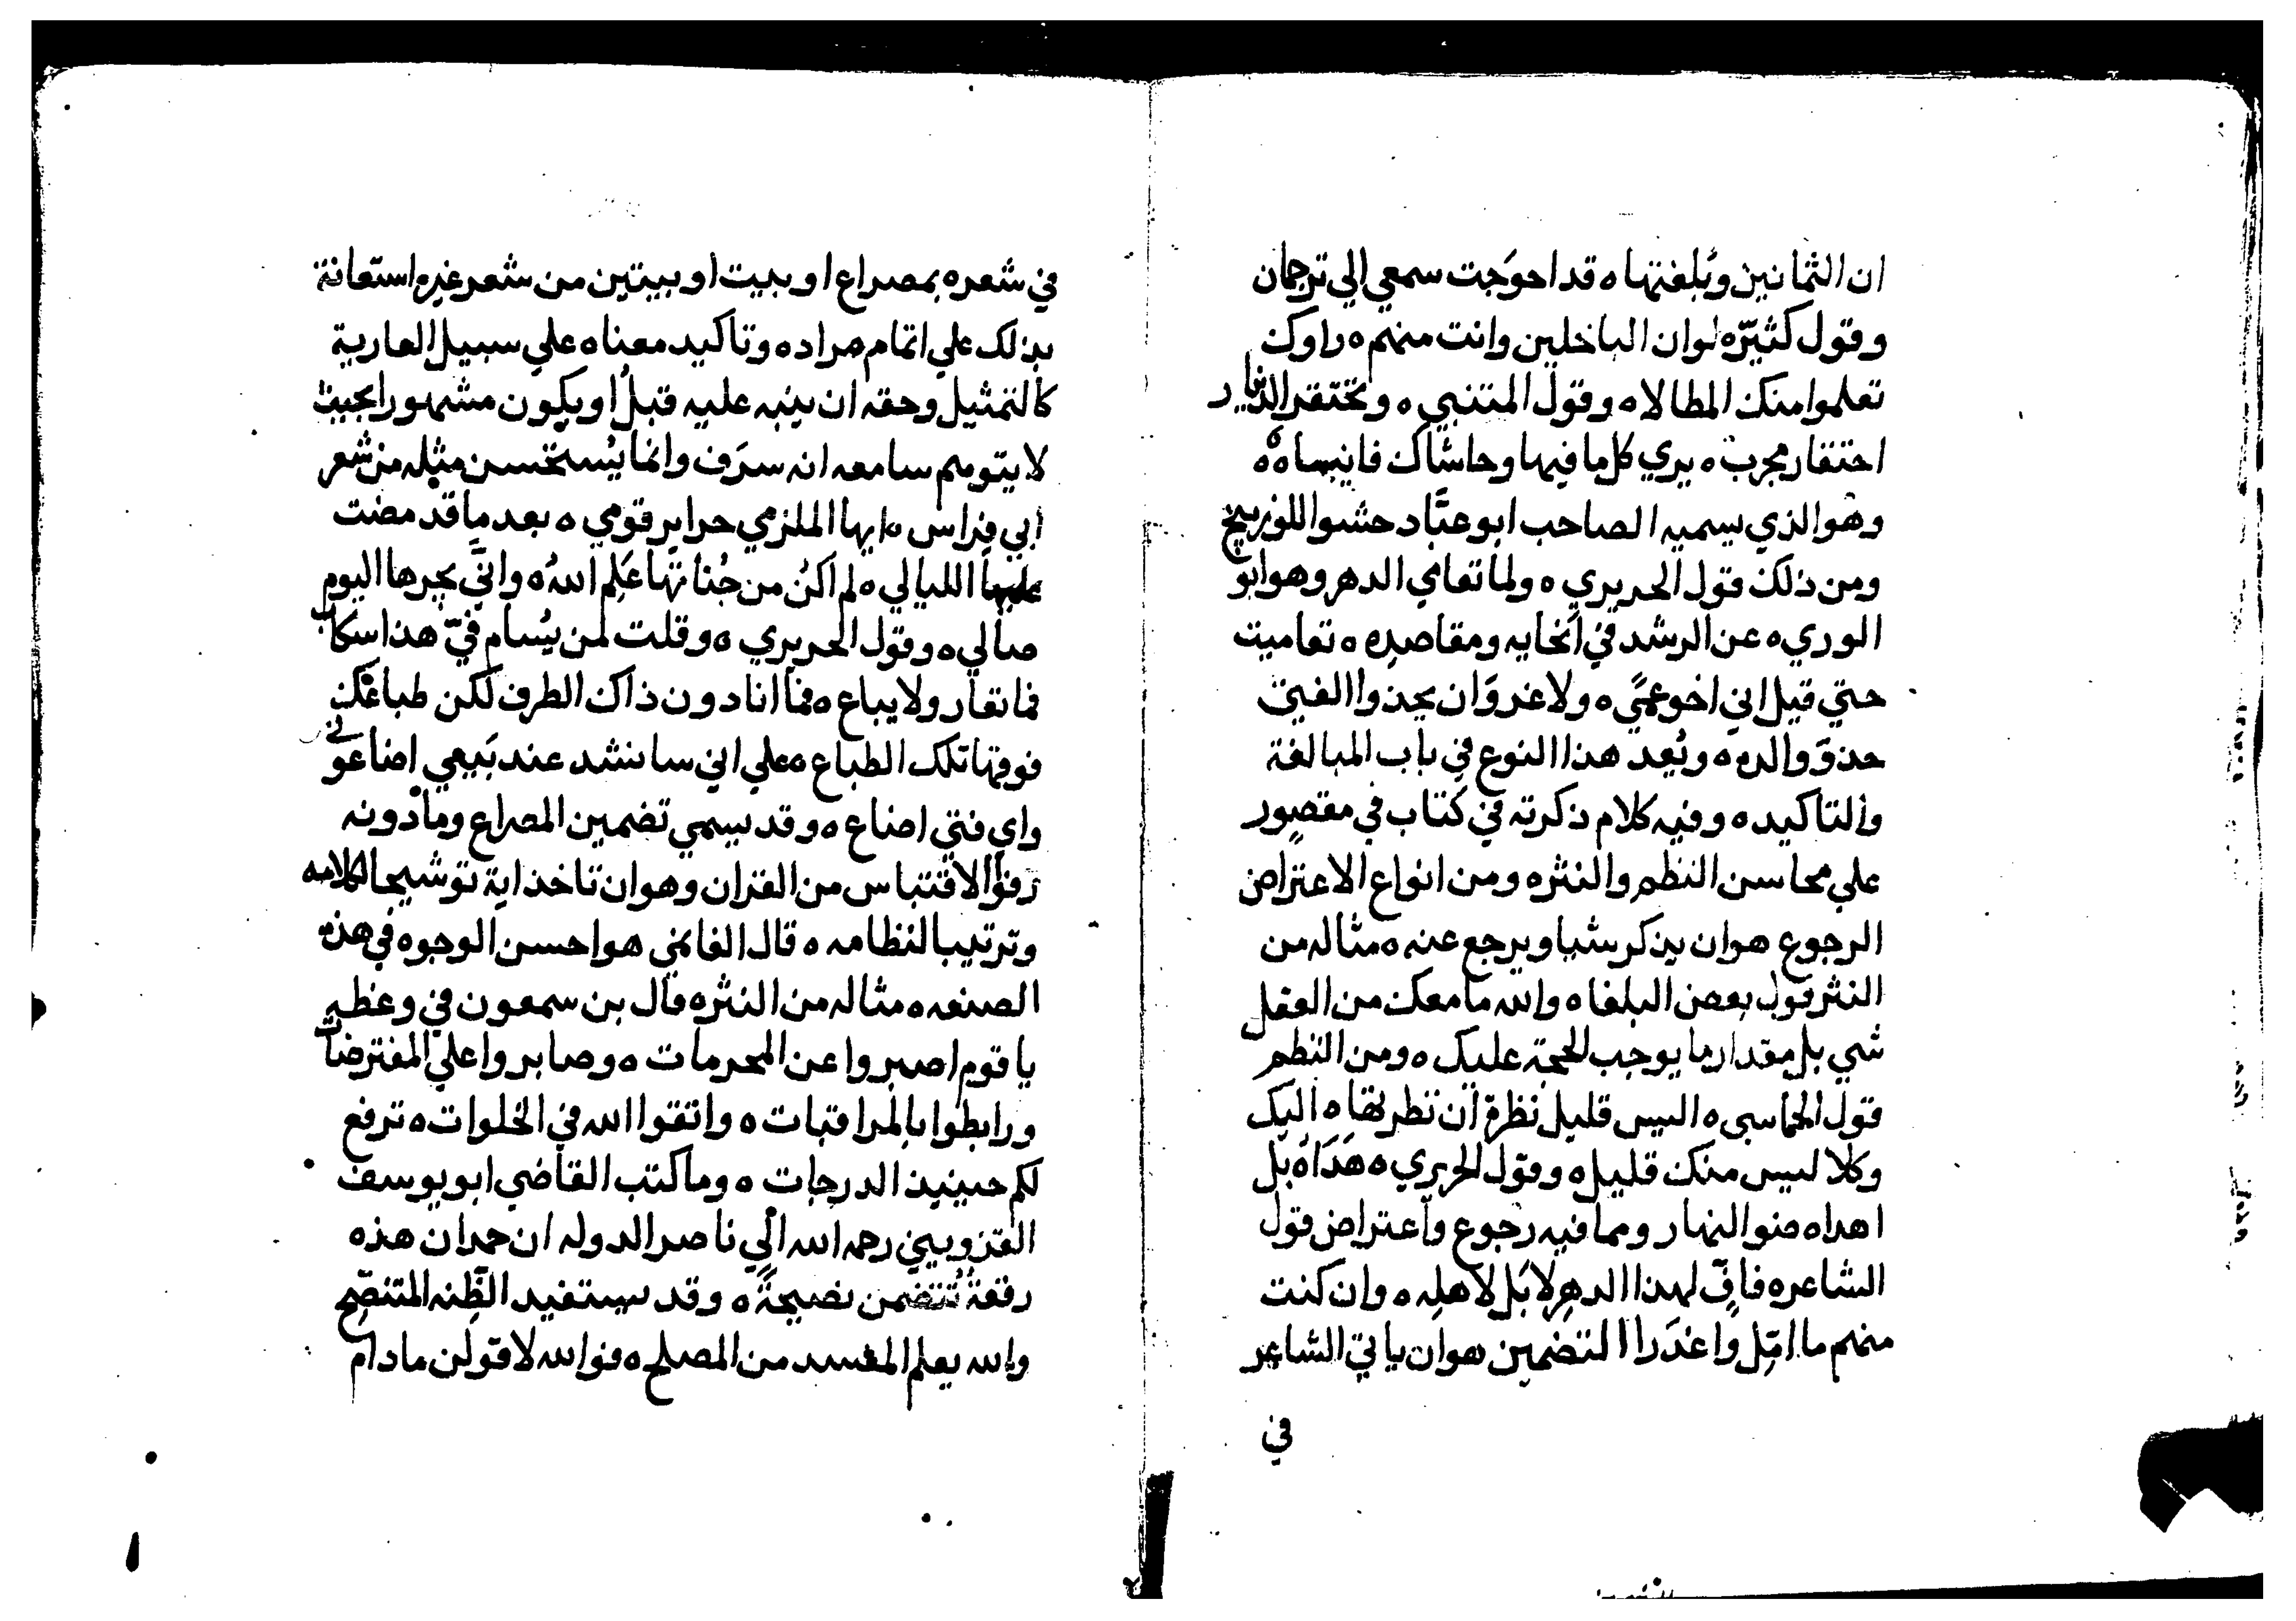 ان الثمانين وبُلغتها ه قد احوَجت سمعي الي ترجمان
وقول كثيّره لوان الباخلين وانت منهم ه راوك
تعلموا منك المطالا ه وقول المتنبي ه وتحتقر الدنيا
احتقار مجرب ه يري كل ما فيها وحاشاك فانيا ه ه
وهو الذي يسميه الصاحب ابو عبَّاد حشو اللوزينج
ومن ذلك قول الحريري ه ولما تعامي الدهر وهو ابو
الوري ه عن الرشد في انحايه ومقاصده ه تعاميت
حتي قيل اني اخو عمًي ه ولا غروَ ان يحذوا الفتي
حذوَ والده ه ويُعد هذا النوع في باب المبالغة
والتاكيد ه وفيه كلام ذكرته في كتاب في مقصور
علي محاسن النظم والنثر ه ومن انواع الاعتراض
الرجوع هو ان يذكر شيا ويرجع عنه ه مثاله من
النثر قول بعض البلغا ه والله ما معك من العقل
شي بل مقدار ما يوجب الحجة عليك ه ومن النظم
قول الحماسي ه اليس قليل نظرة ان نظرتها ه اليك
وكلا ليس منك قليل ه وقول الحريري ه هَذاه بَل
اهداه ضو النهار ومما فيه رجوع واعتراض قول
الشاعر ه فافٍّ لهذا الدهرِ لا بَل لاهله ه وان كنت
منهم ما امّل واغدَرا التضمين هو ان ياتي الشاعر
في
في شعره بمصراع او ببيت او بيتين من شعر غيره استعانة
بذلك علي اتمام مراده وتاكيد معناه علي سبيل العارية
كالتمثيل وحقه ان ينبه عليه قبلُ او يكون مشهورا بحيث
لا يتوهم سامعه انه سرَف وانما يُستحسن مثله من شعر
ابي فراس ه ايها الملزمي حراير قومي ه بعد ما قد مضت
عليها الليالي ه لم اكن من جُناتها عَلِم الله ه واني بحرها اليوم
صالي ه وقول الحريري ه وقلت لمن يُسام فيّ هذا سكاب
فما تعار ولا يباع ه فما انا دون ذاك الطرف لكن طباعك
فوقها تلك الطباع ه علي اني سانشد عند بَيعي اضاعوني
واي فتي اضاع ه وقد يسمي تضمين المصراع وما دونه
رفوًا الاقتباس من القران وهو ان تاخذ اية توشيحا لكلامه
وترتيبا لنظامه ه قال الغانمي هو احسن الوجوه في هذه
الصنعه ه مثاله من النثر ه قال بن سمعون في وعظه
يا قوم اصبروا عن المحرمات ه وصابروا علي المفترضات
ورابطوا بالمراقبات ه واتقوا الله في الخلوات ه ترفع
لكم حينيذ الدرجات ه وما كتب القاضي ابو يوسف
القزويني رحمه الله الي ناصر الدوله ان حمدان هذه
رقعة تتضمن نصيحةً ه وقد سيتفيد الظِنه المتنصِّح
والله يعلم المفسد من المصلح ه فوالله لاقولن ما دام